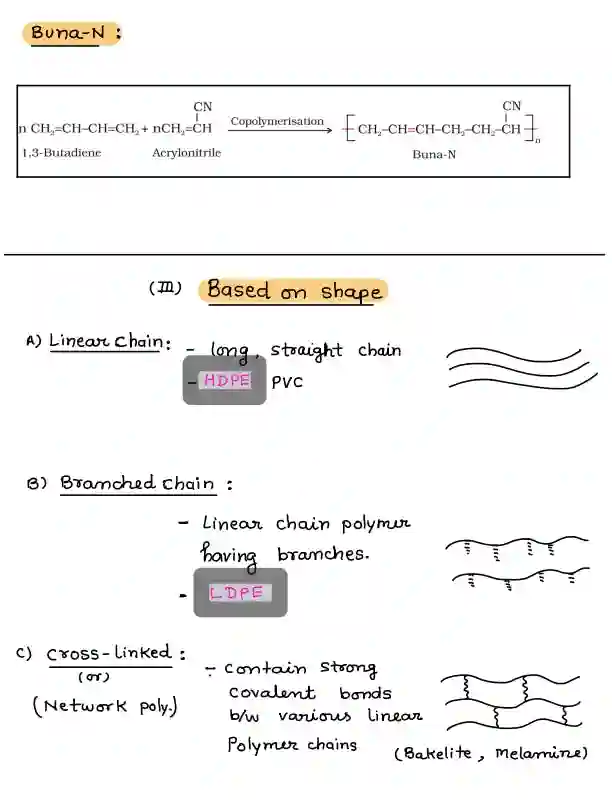 Buna-N :
CN CN
n CH₂=CH–CH=CH₂ + nCH₂=CH Copolymerisation [CH₂–CH=CH–CH₂–CH₂–CH]n
1,3-Butadiene Acrylonitrile Buna-N
(III) Based on shape
A) Linear Chain : - long, straight chain
- HDPE PVC
B) Branched Chain :
- Linear chain polymer
having branches.
- LDPE
C) Cross-Linked : - contain strong
(or) covalent bonds
(Network poly.) b/w various linear
Polymer chains (Bakelite, Melamine)